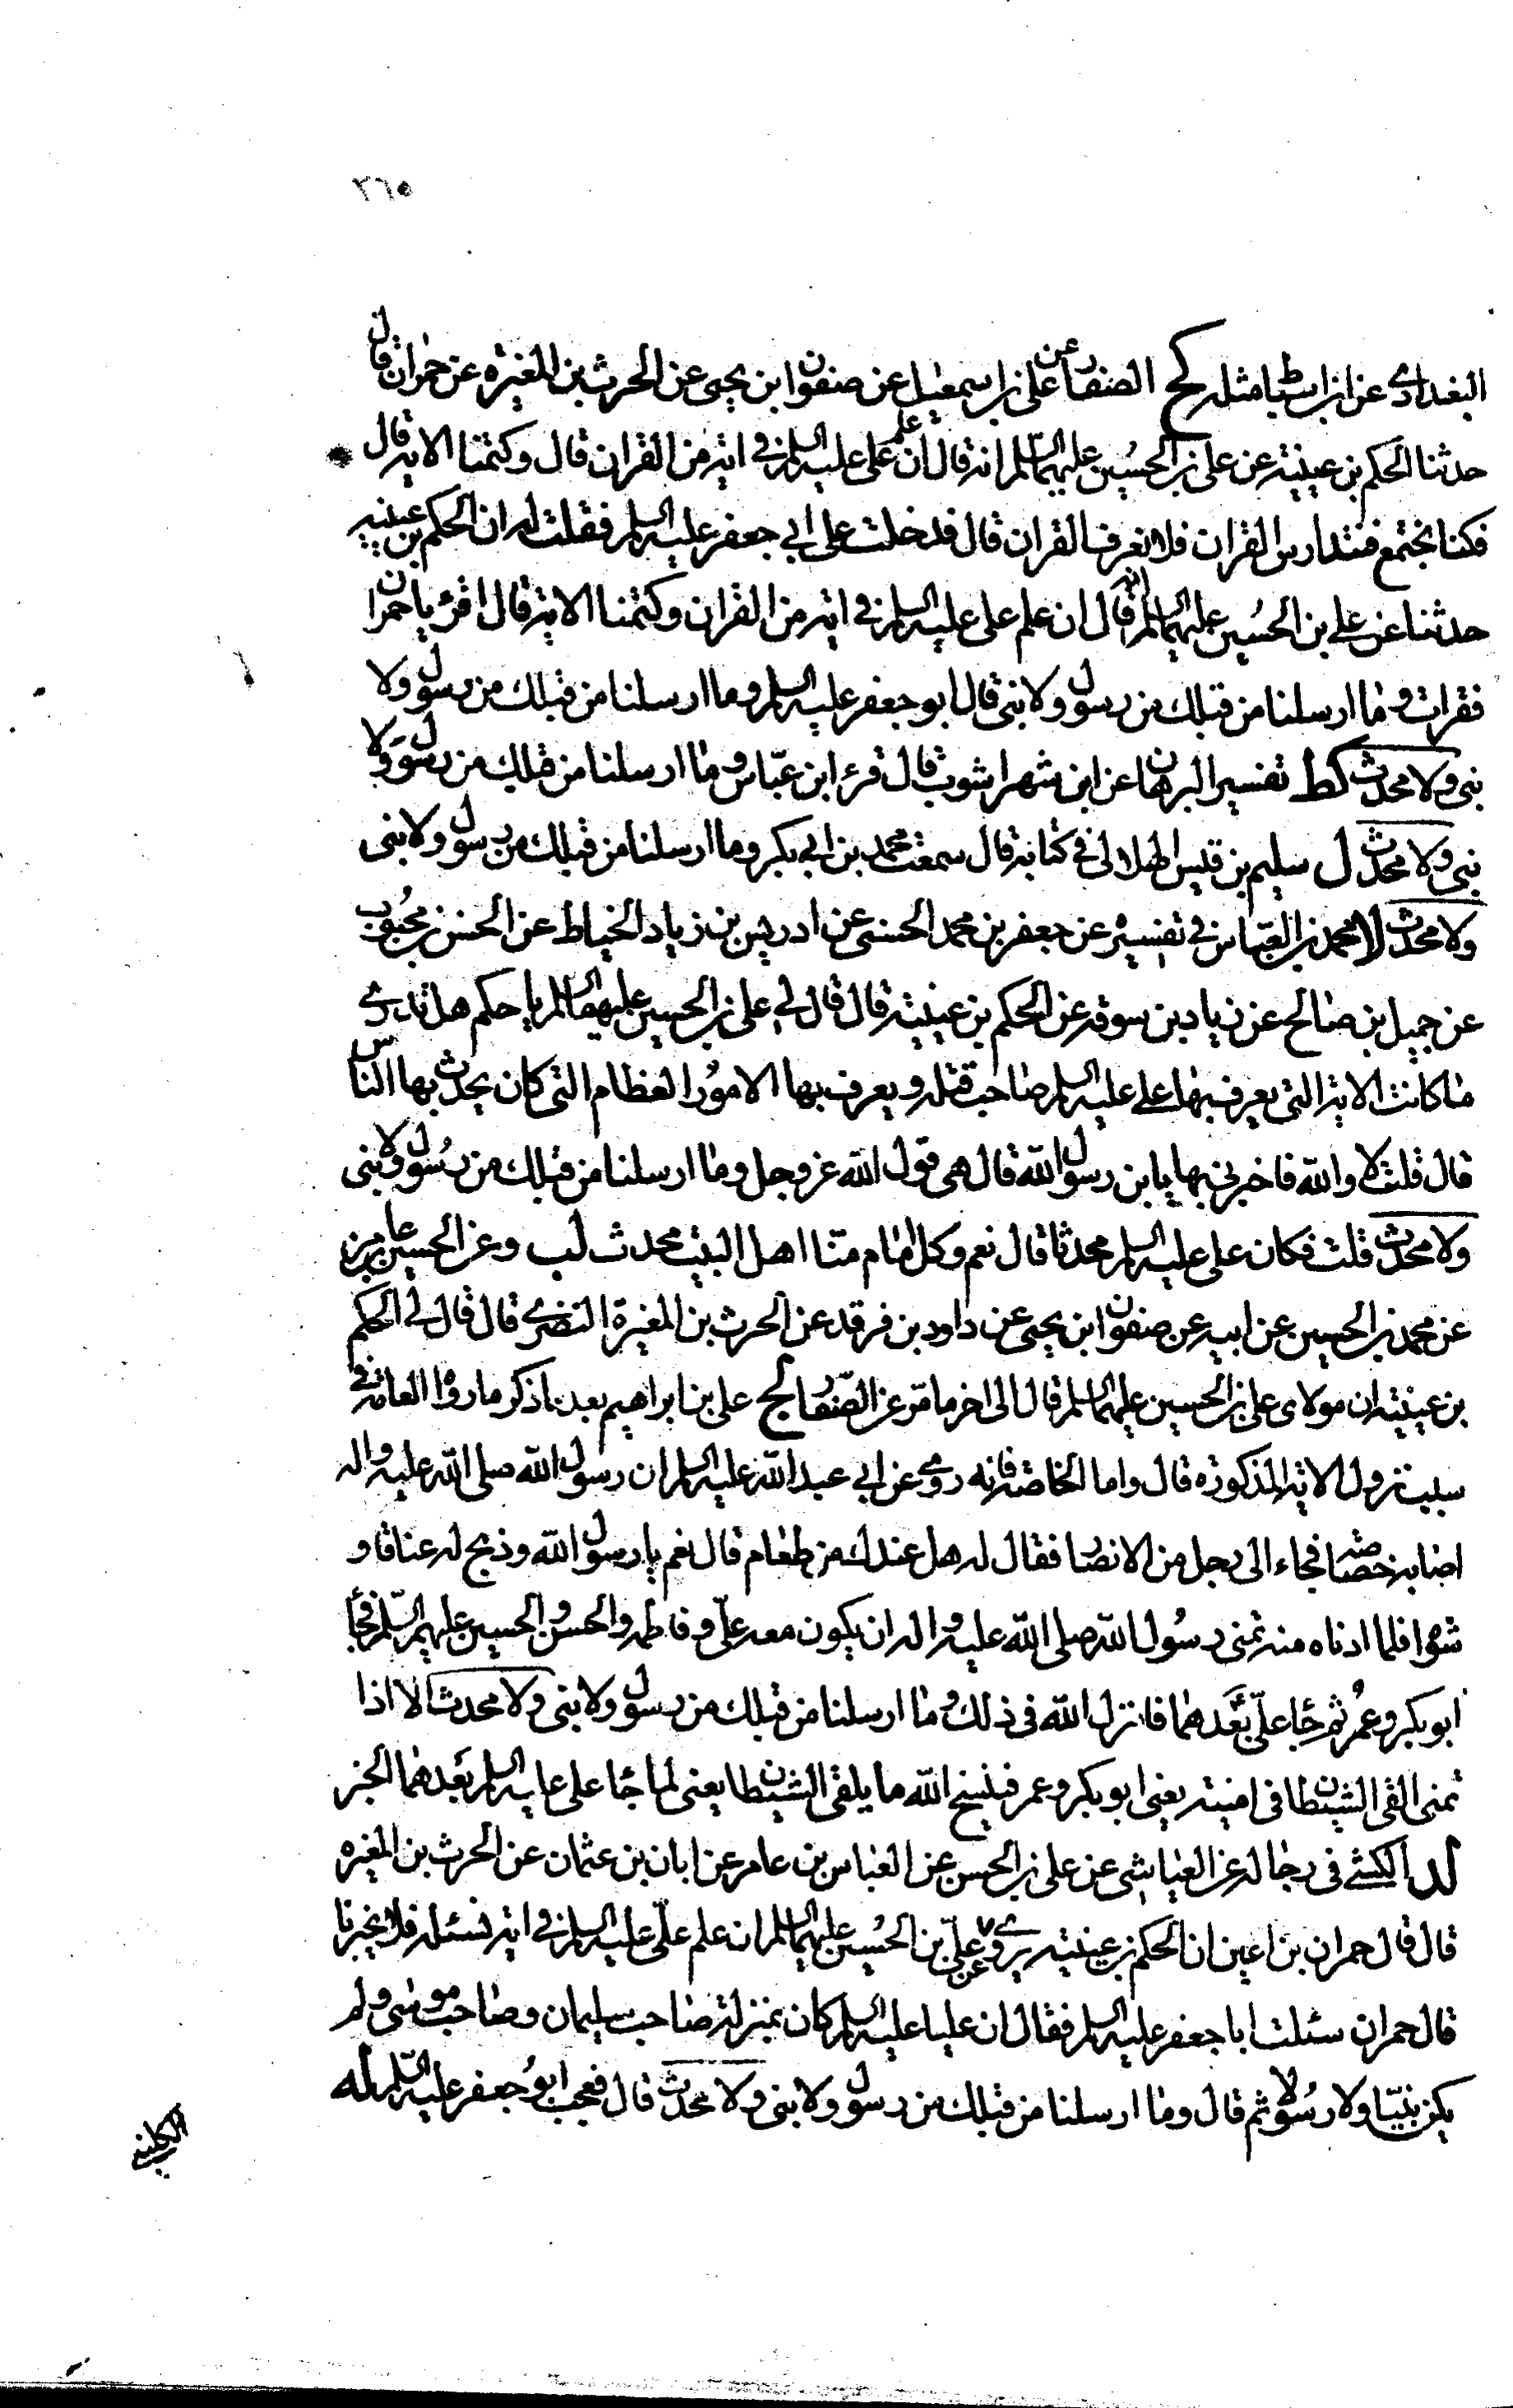 ٢٦٥
البغدادي عن ابن اسباط مثله كح الصفار عن علي بن اسمعيل عن صفوان ابن يحيى عن الحرث بن المغيره عن حمران قال
حدثنا الحكم بن عيينة عن علي بن الحسين عليهما السلم انه قال ان علم علي عليه السلم في اية من القران قال وكتمنا الاية قال
فكنا نجتمع فنتدارس القران فلا نعرف القران قال فدخلت على ابي جعفر عليه السلم فقلت له ان الحكم بن عيينه
حدثنا عن علي بن الحسين عليهما السلم انه قال ان علم علي عليه السلم في اية من القران وكتمنا الاية قال اقرء يا حمران
فقرات وما ارسلنا من قبلك من رسول ولا نبي قال ابو جعفر عليه السلم وما ارسلنا من قبلك من رسول ولا
نبي ولا محدث كط تفسير البرهان عن ابن شهراشوب قال قرء ابن عباس وما ارسلنا من قبلك من رسول ولا
نبي ولا محدث ل سليم بن قيس الهلالي في كتابه قال سمعت محمد بن ابي بكر وما ارسلنا من قبلك من رسول ولا نبي
ولا محدث لا محمد بن العباس في تفسيره عن جعفر بن محمد الحسني عن ادريس بن زياد الخياط عن الحسن بن محبوب
عن جميل بن صالح عن زياد بن سوقه عن الحكم بن عيينة قال قال لي علي بن الحسين عليهما السلم يا حكم هل تدري
ما كانت الاية التي يعرف بها علي عليه السلم صاحب قتله ويعرف بها الامور العظام التي كان يحدث بها الناس
قال قلت لا والله فاخبرني بها يا بن رسول الله قال هي قول الله عز وجل وما ارسلنا من قبلك من رسول ولا نبي
ولا محدث قلت فكان علي عليه السلم محدثا قال نعم وكل امام منا اهل البيت محدث لب وعن الحسين بن عامر
عن محمد بن الحسين عن ابيه عن صفوان ابن يحيى عن داود بن فرقد عن الحرث بن المغيرة النضري قال قال لي الحكم
بن عيينة ان مولاي علي بن الحسين عليهما السلم قال لي الى اخر ما مر عن الصفار لج علي بن ابراهيم بعد ما ذكر ما رواه العامة في
سبب نزول الاية المذكوره قال واما الخاصة فانه روي عن ابي عبد الله عليه السلم ان رسول الله صلى الله عليه واله
اصابه خصاصة فجاء الى رجل من الانصار فقال له هل عندك من طعام قال نعم يا رسول الله وذبح له عناقا و
شواه فلما ادناه منه تمنى رسول الله صلى الله عليه واله ان يكون معه علي وفاطمه والحسن والحسين عليهم السلم فجا
ابو بكر وعمر ثم جا علي بعدهما فانزل الله في ذلك وما ارسلنا من قبلك من رسول ولا نبي ولا محدث الا اذا
تمنى القى الشيطان في امنيته يعني ابو بكر وعمر فينسخ الله ما يلقي الشيطان يعني لما جا علي عليه السلم بعدهما الخبر
لد الكشي في رجاله عن العياشي عن علي بن الحسن عن العباس بن عامر عن ابان بن عثمان عن الحرث بن المغيره
قال قال حمران بن اعين ان الحكم بن عيينه يروي عن علي بن الحسين عليهما السلم ان علم علي عليه السلم في اية نسئله فلا يخبرنا
قال حمران سئلت ابا جعفر عليه السلم فقال ان عليا عليه السلم كان بمنزلة صاحب سليمان وصاحب موسى ولم
يكن نبيا ولا رسولا ثم قال وما ارسلنا من قبلك من رسول ولا نبي ولا محدث قال فعجب ابو جعفر عليه السلم له